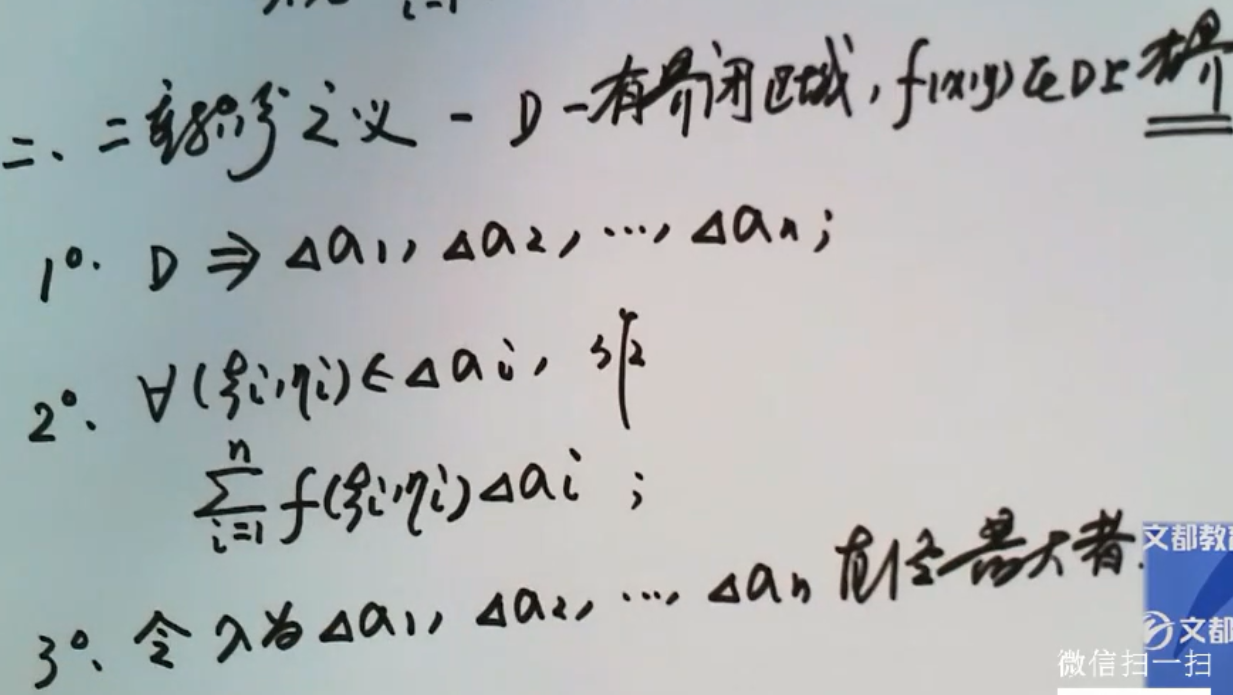 i=1
二、二重积分定义 - D-有界闭区域，f(x,y)在D上有界
1°. D ⇒ Δa1, Δa2, ..., Δan;
2°. ∀(ξi,ηi)∈Δai, 作
n
∑ f(ξi,ηi)Δai ;
i=1
3°. 令λ为Δa1, Δa2, ..., Δan直径最大者.
文都教育
文都
微信扫一扫